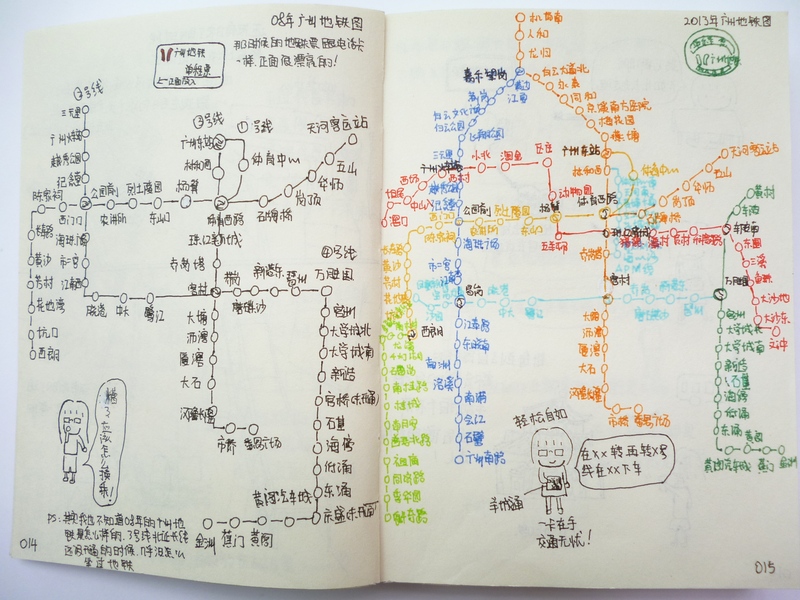 08年广州地铁图
那时候的地铁票跟电话卡
一样,正面很漂亮的!
广州地铁
单程票
②号线
三元里
越秀公园
纪念堂
公园前
烈士陵园
农讲所
东山口
杨箕
体育西路
③号线
广州东站
林和西
①号线
体育中心
天河客运站
五山
华师
岗顶
石牌桥
珠江新城
陈家祠
西门口
长寿路
黄沙
芳村
花地湾
坑口
西朗
海珠广场
市二宫
江南西
晓港
中大
鹭江
客村
大塘
沥滘
厦滘
大石
汉溪长隆
市桥
番禺广场
赤岗塔
磨碟沙
新港东
琶洲
④号线
万胜围
官洲
大学城北
大学城南
新造
官桥(未开通)
石碁
海傍
低涌
东涌
庆盛(未开通)
黄阁汽车城
黄阁
蕉门
金洲
糟了,应该怎么换乘!
PS:其实我也不知道08年的广州地
铁是怎么样的,3号线北延长线
还没开通的时候,几乎没怎么
坐过地铁
014
2013年广州地铁图
机场南
人和
龙归
嘉禾望岗
白云大道北
永泰
同和
京溪南方医院
梅花园
燕塘
黄边
江夏
萧岗
白云文化广场
白云公园
飞翔公园
三元里
广州火车站
越秀公园
纪念堂
公园前
海珠广场
市二宫
昌岗
江泰路
东晓南
南洲
洛溪
南浦
会江
石壁
广州南站
小北
淘金
区庄
动物园
杨箕
五羊邨
珠江新城
西村
西场
中山八
坦尾
滘口
广州东站
林和西
体育西路
体育中心
天河客运站
五山
华师
岗顶
石牌桥
烈士陵园
农讲所
东山口
陈家祠
长寿路
黄沙
芳村
花地湾
西朗
客村
大塘
沥滘
厦滘
大石
汉溪长隆
市桥
番禺广场
猎德
潭村
员村
科韵路
车陂南
东圃
三溪
鱼珠
大沙地
大沙东
文冲
黄村
车陂
万胜围
官洲
大学城北
大学城南
新造
石碁
海傍
低涌
东涌
黄阁汽车城
黄阁
蕉门
金洲
轻松自如
在××转,再转×号
线在××下车
羊城通
一卡在手
交通无忧!
015